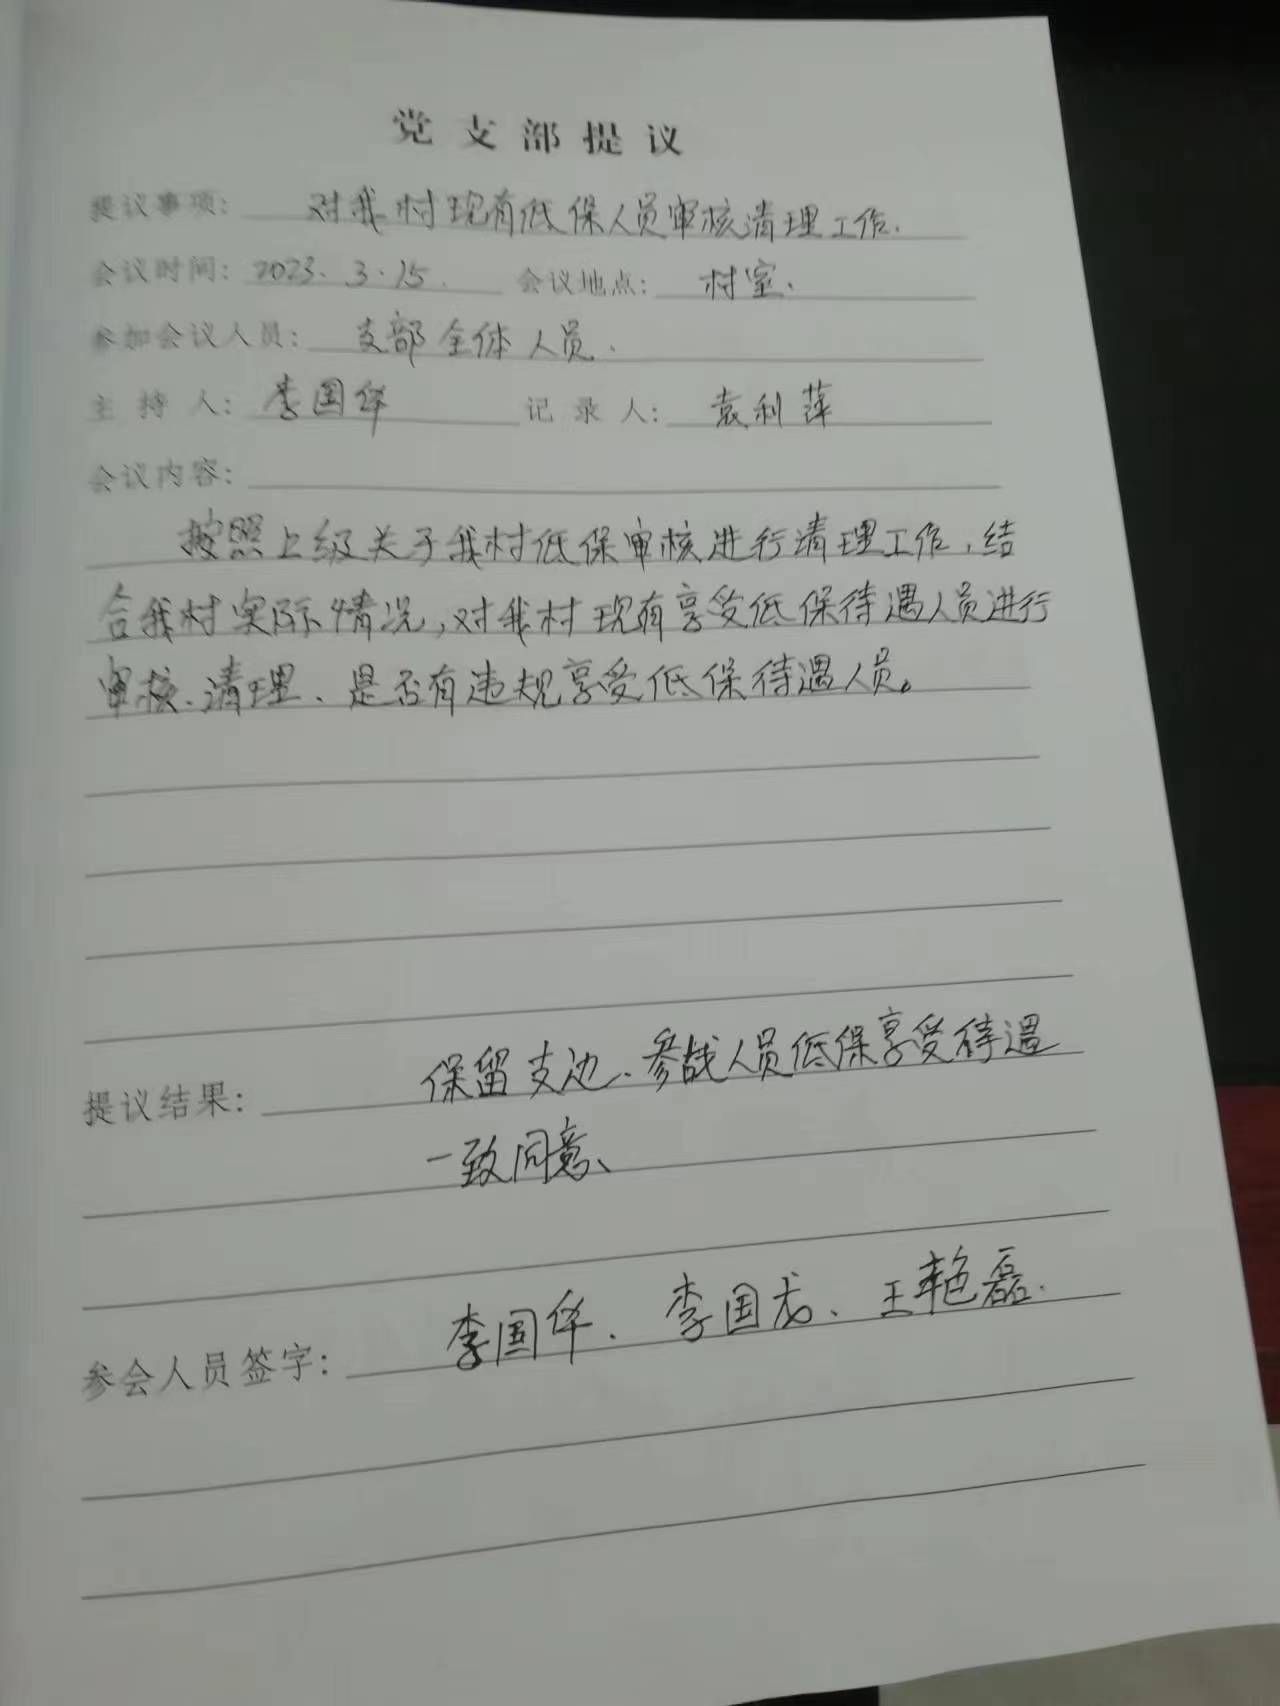 党支部提议
提议事项: 对我村现有低保人员审核清理工作.
会议时间: 2023.3.15. 会议地点: 村室.
参加会议人员: 支部全体人员.
主持人: 李国华 记录人: 袁利萍
会议内容:
按照上级关于我村低保审核进行清理工作,结
合我村实际情况,对我村现有享受低保待遇人员进行
审核、清理、是否有违规享受低保待遇人员。
提议结果: 保留支边、参战人员低保享受待遇
一致同意、
参会人员签字: 李国华、李国龙、王艳磊.